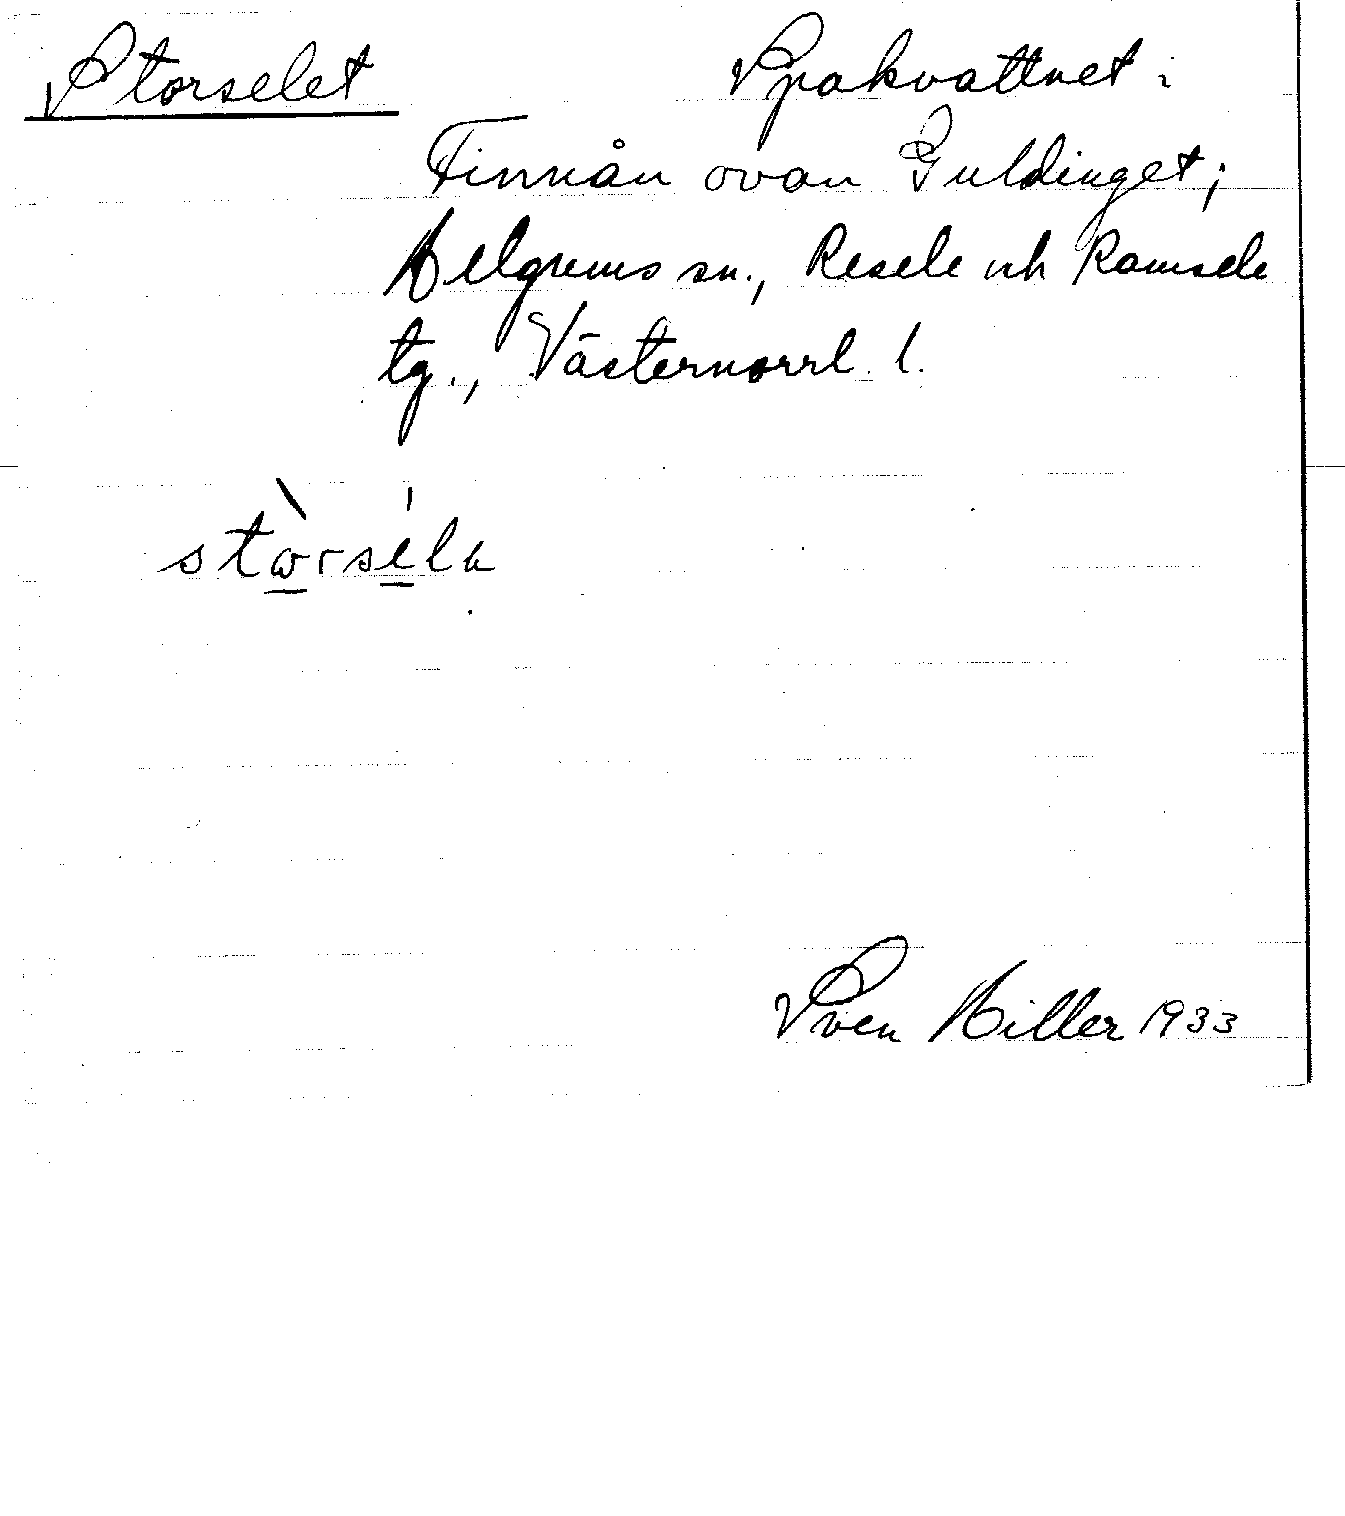 Storselet Spakvattnet i
Finnån ovan Guldinget;
Helgums sn., Resele och Ramsele
tg., Västernorrl. l.
Sven Hiller 1933